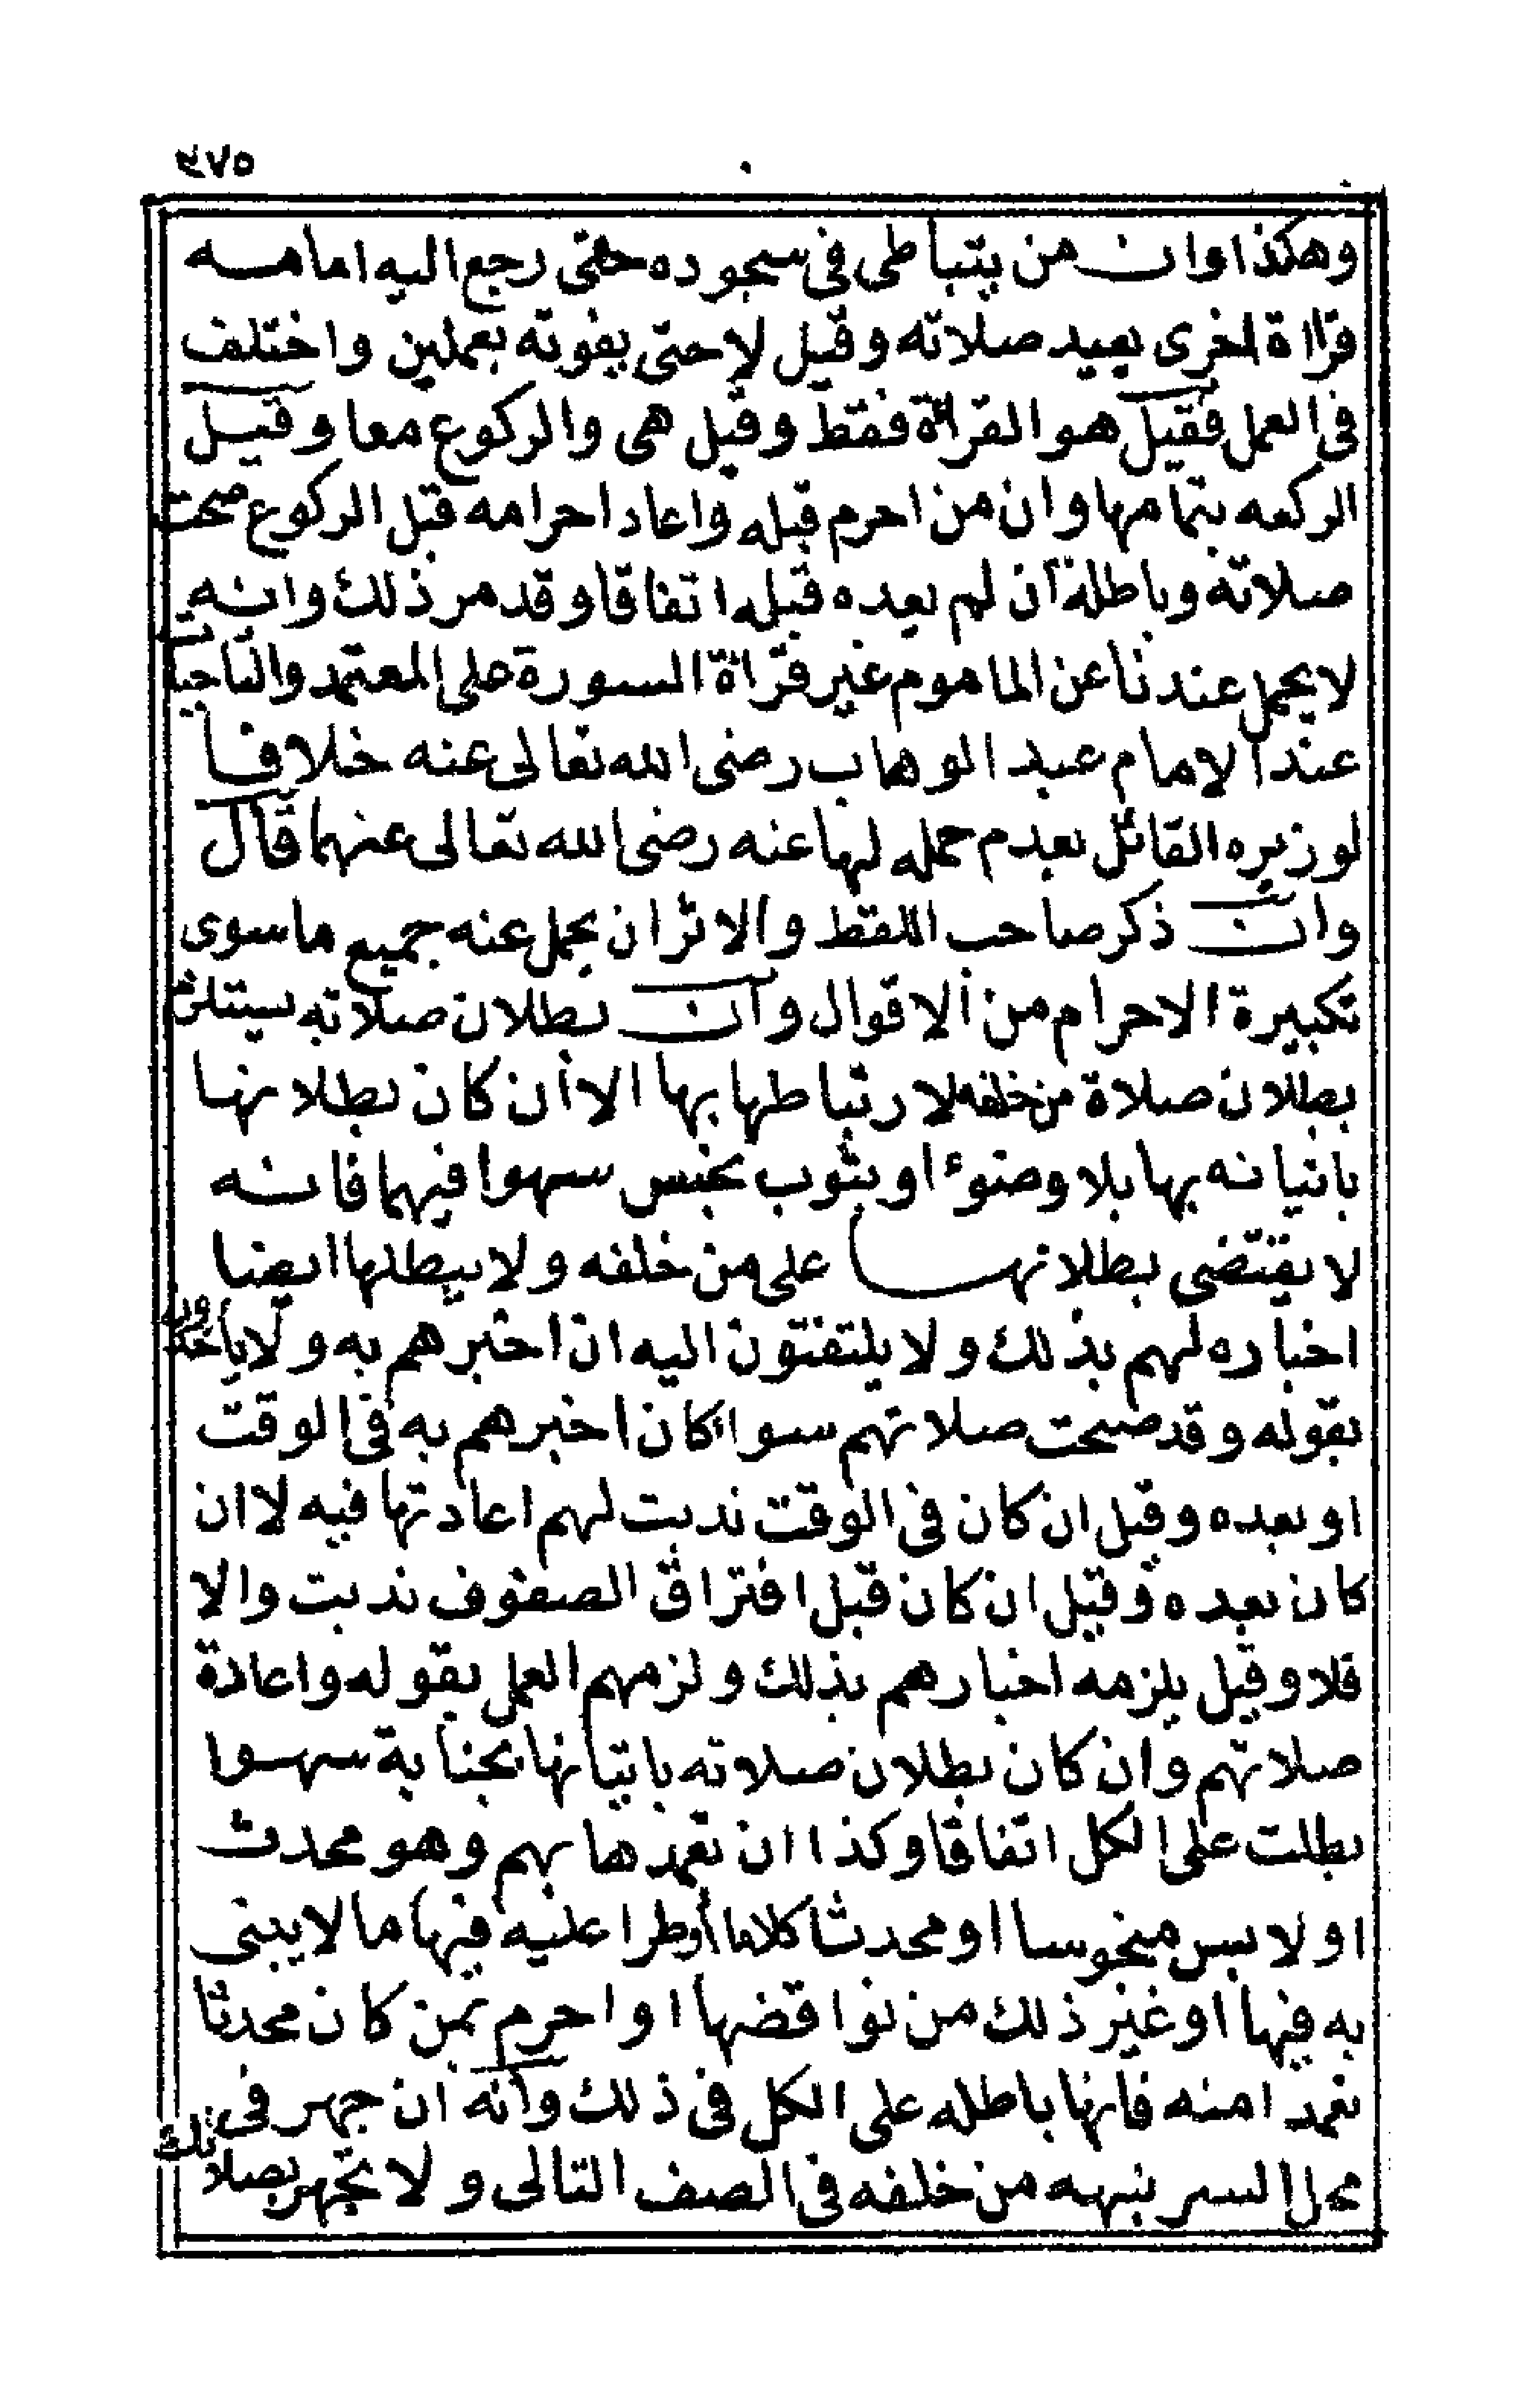 ٤٧٥
وهكذا وان من يتباطى فى سجوده حتى رجع اليه امامه
قراة اخرى يعيد صلاته وقيل لا حتى يفوته بعملين واختلف
فى العمل فقيل هو القراة فقط وقيل هى والركوع معا وقيل
الركعه بتمامها وان من احرم قبله واعاد احرامه قبل الركوع صحت
صلاته وباطلة ان لم يعده قبله اتفاقا وقد مر ذلك وانه
لا يحمل عندنا عن الماموم غير قراة السورة على المعتمد
عند الامام عبد الوهاب رضى الله تعالى عنه خلافا
لوزيره القائل بعدم حمله لها عنه رضى الله تعالى عنهما قال
وان ذكر صاحب اللقط والاثر ان يحمل عنه جميع ما سوى
تكبيرة الاحرام من الاقوال وان بطلان صلاته يستلزم
بطلان صلاة من خلفه لارتباطها بها الا أن كان بطلانها
باتيانه بها بلا وضوء او بثوب نجس سهوا فيهما فانه
لا يقتضى بطلانها على من خلفه ولا يبطلها ايضا
اخباره لهم بذلك ولا يلتفتون اليه ان اخبرهم به ولا ياخذون
بقوله وقد صحت صلاتهم سواء كان اخبرهم به فى الوقت
او بعده وقيل ان كان فى الوقت ندبت لهم اعادتها فيه لا ان
كان بعده وقيل ان كان قبل افتراق الصفوف ندبت والا
فلا وقيل يلزمه اخبارهم بذلك ولزمهم العمل بقوله واعادة
صلاتهم وان كان بطلان صلاته باتيانها بجنابة سهوا
بطلت على الكل اتفاقا وكذا ان تعمدها بهم وهو محدث
او لابس منجوسا او محدثا كلاما أوطرا عليه فيها ما لا يبنى
به فيها او غير ذلك من نواقضها او احرم بمن كان محدثا
تعمدا منه فانها باطله على الكل فى ذلك وأنه ان جهر فى
محل السر نبهه من خلفه فى الصف التالى ولا تجهر بصلاتك